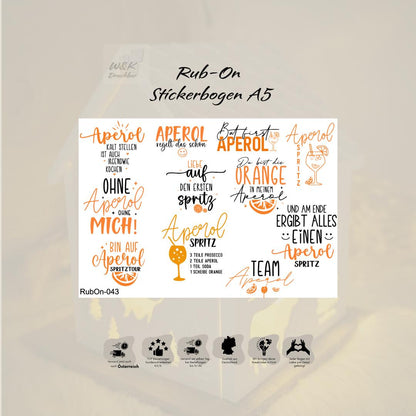 W&K
Druckbar
Rub-On
Stickerbogen A5
Aperol
KALT STELLEN
IST AUCH
IRGENDWIE
KOCHEN
APEROL
regelt das schon
But first
APEROL
Aperol
SPRITZ
LIEBE
auf
DEN ERSTEN
spritz
Du bist die
ORANGE
IN MEINEM
Aperol
OHNE
Aperol
OHNE
MICH!
UND AM ENDE
ERGIBT ALLES
EINEN
Aperol
SPRITZ
BIN AUF
Aperol
SPRITZTOUR
Aperol
SPRITZ
3 TEILE PROSECCO
2 TEILE APEROL
1 TEIL SODA
1 SCHEIBE ORANGE
TEAM
Aperol
RubOn-043
Österreich